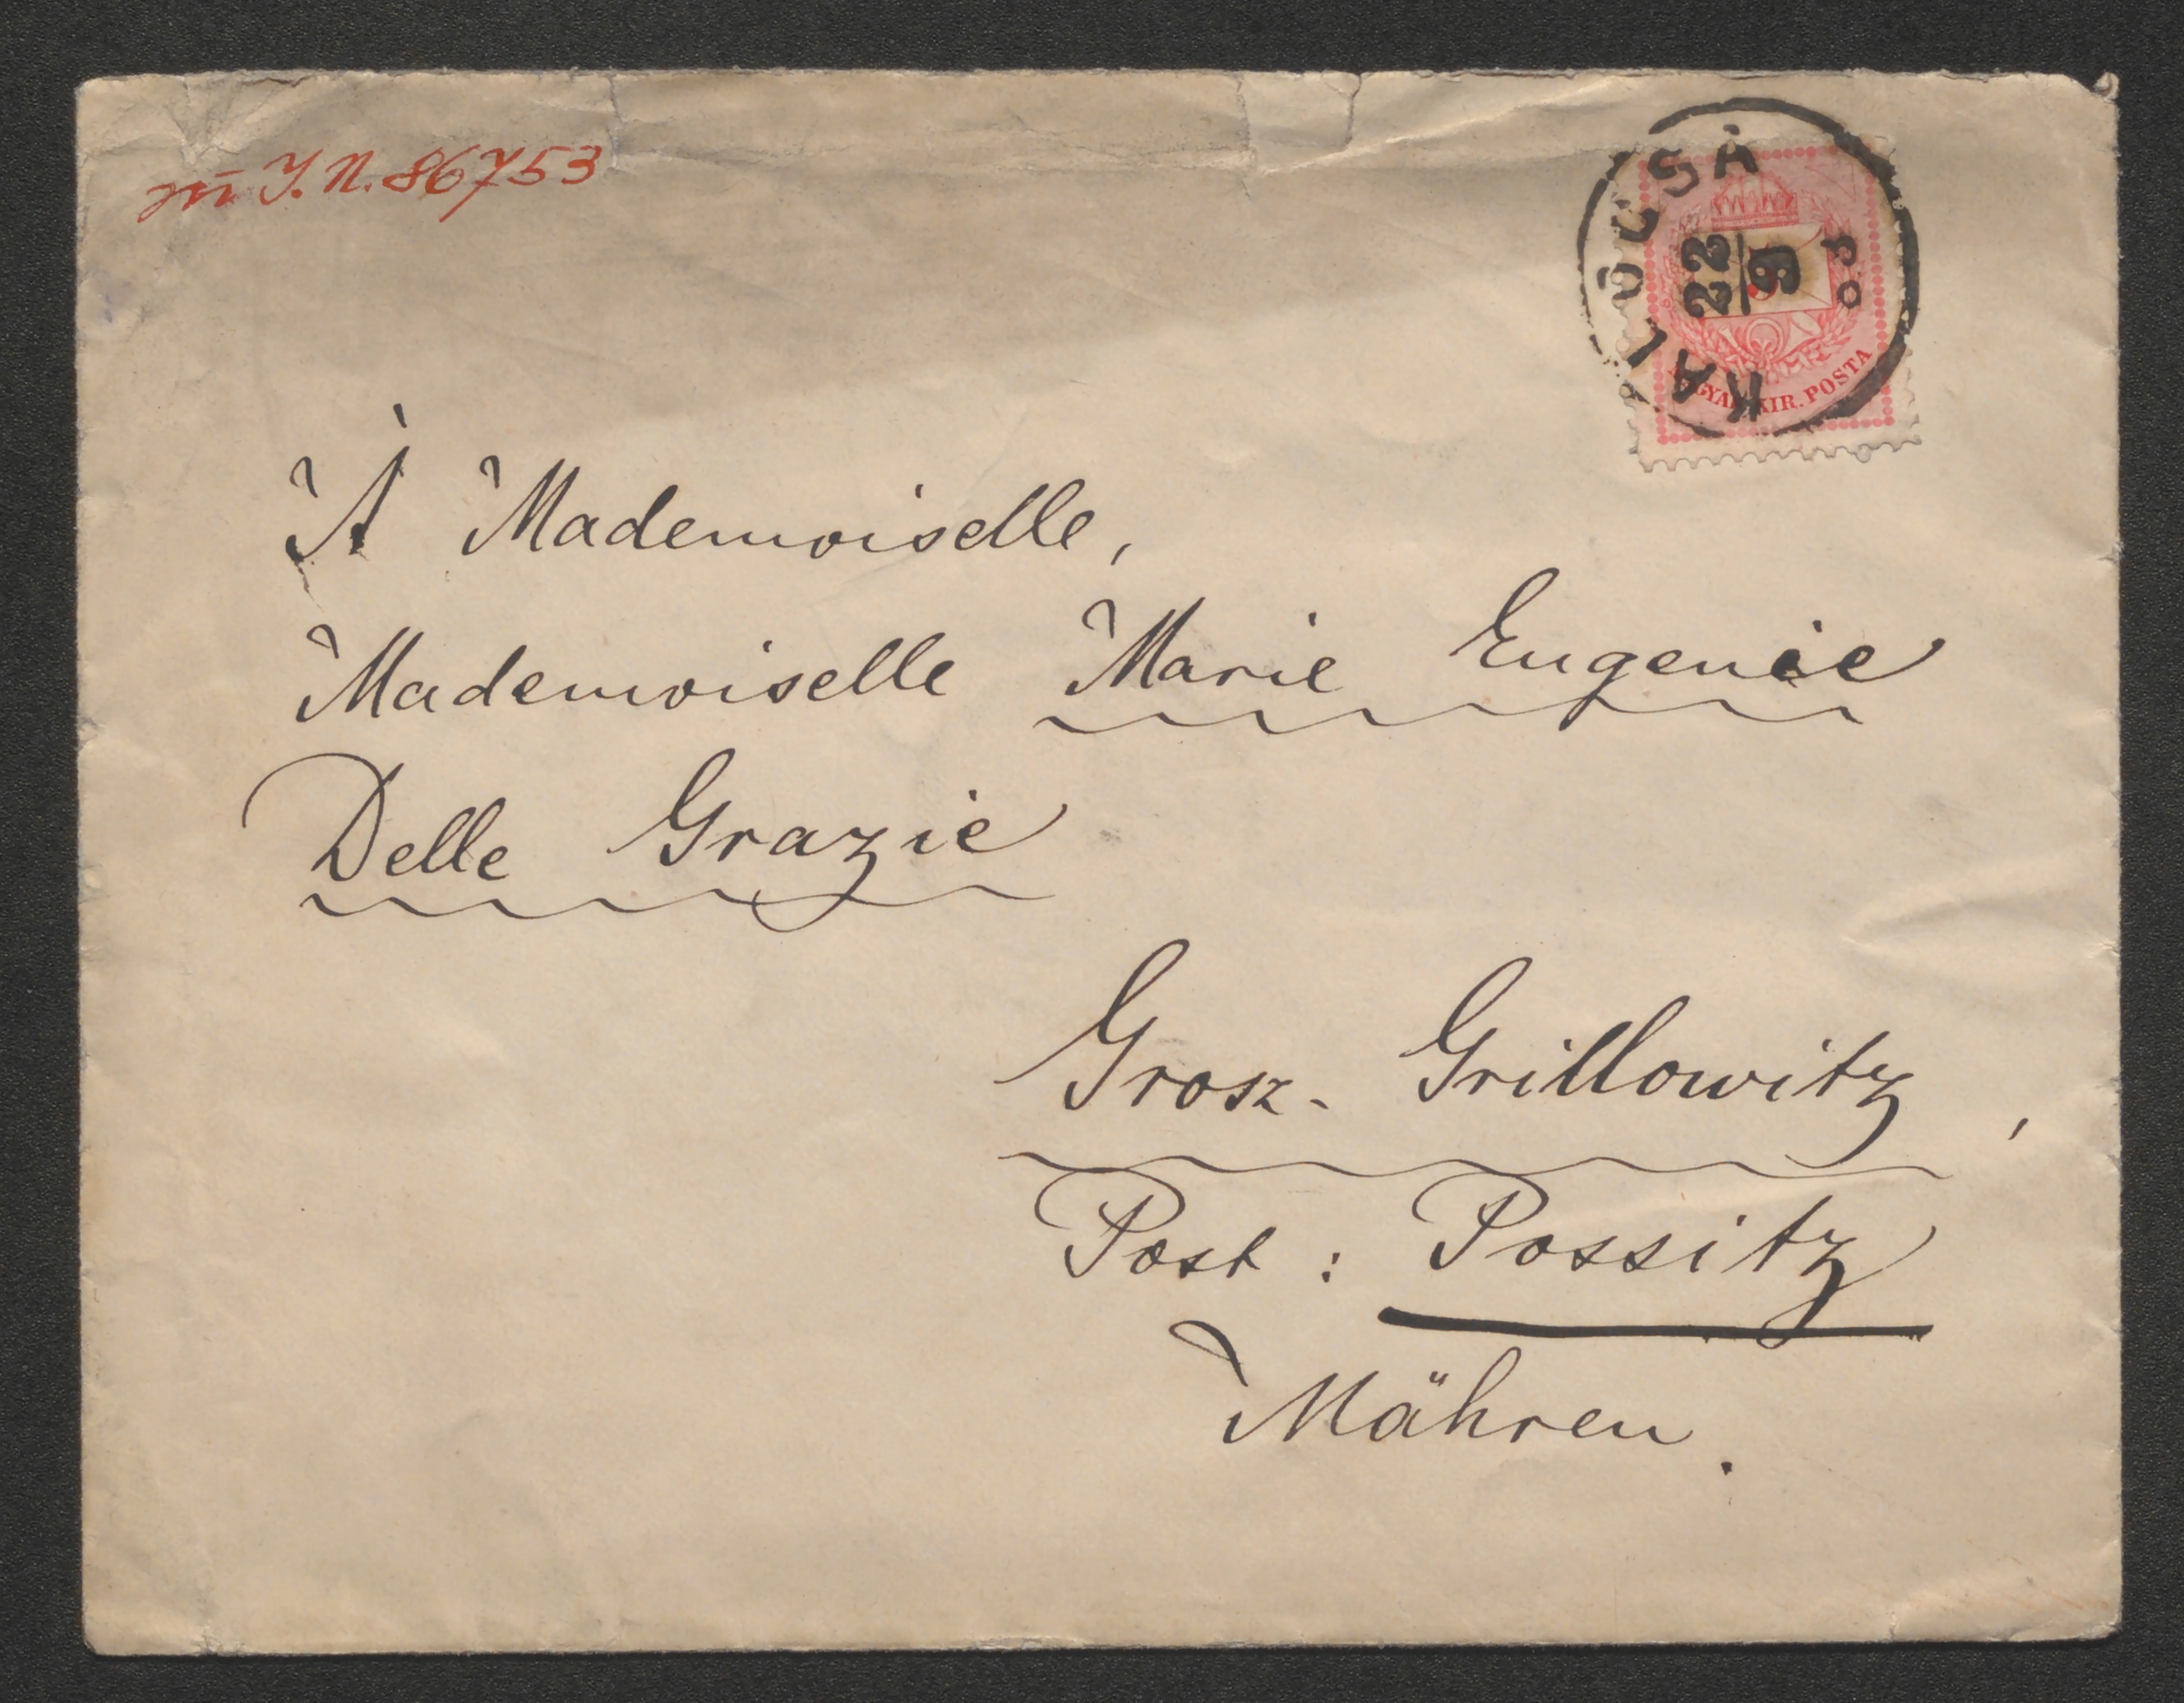 zu I. N. 86753
KALOCSA
22
9
MAGYAR KIR. POSTA
À Mademoiselle,
Mademoiselle Marie Eugenie
Delle Grazie
Grosz-Grillowitz,
Post: Possitz
Mähren.